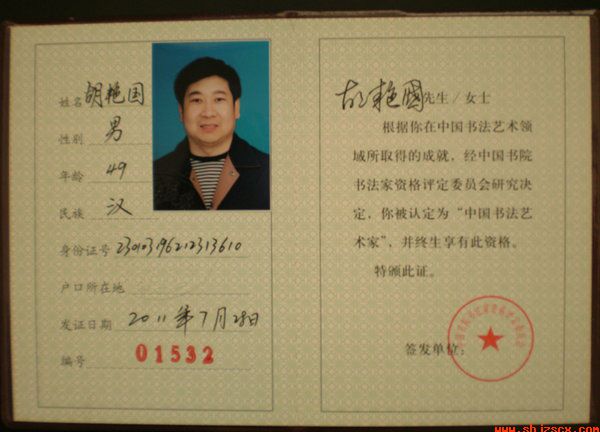 姓名 胡艳国
性别 男
年龄 49
民族 汉
身份证号 230103196212313610
户口所在地
发证日期 2011年7月28日
编号 01532
胡艳國 先生／女士
根据你在中国书法艺术领
域所取得的成就，经中国书院
书法家资格评定委员会研究决
定，你被认定为“中国书法艺
术家”，并终生享有此资格。
特颁此证。
签发单位：
www.shjzscx.com